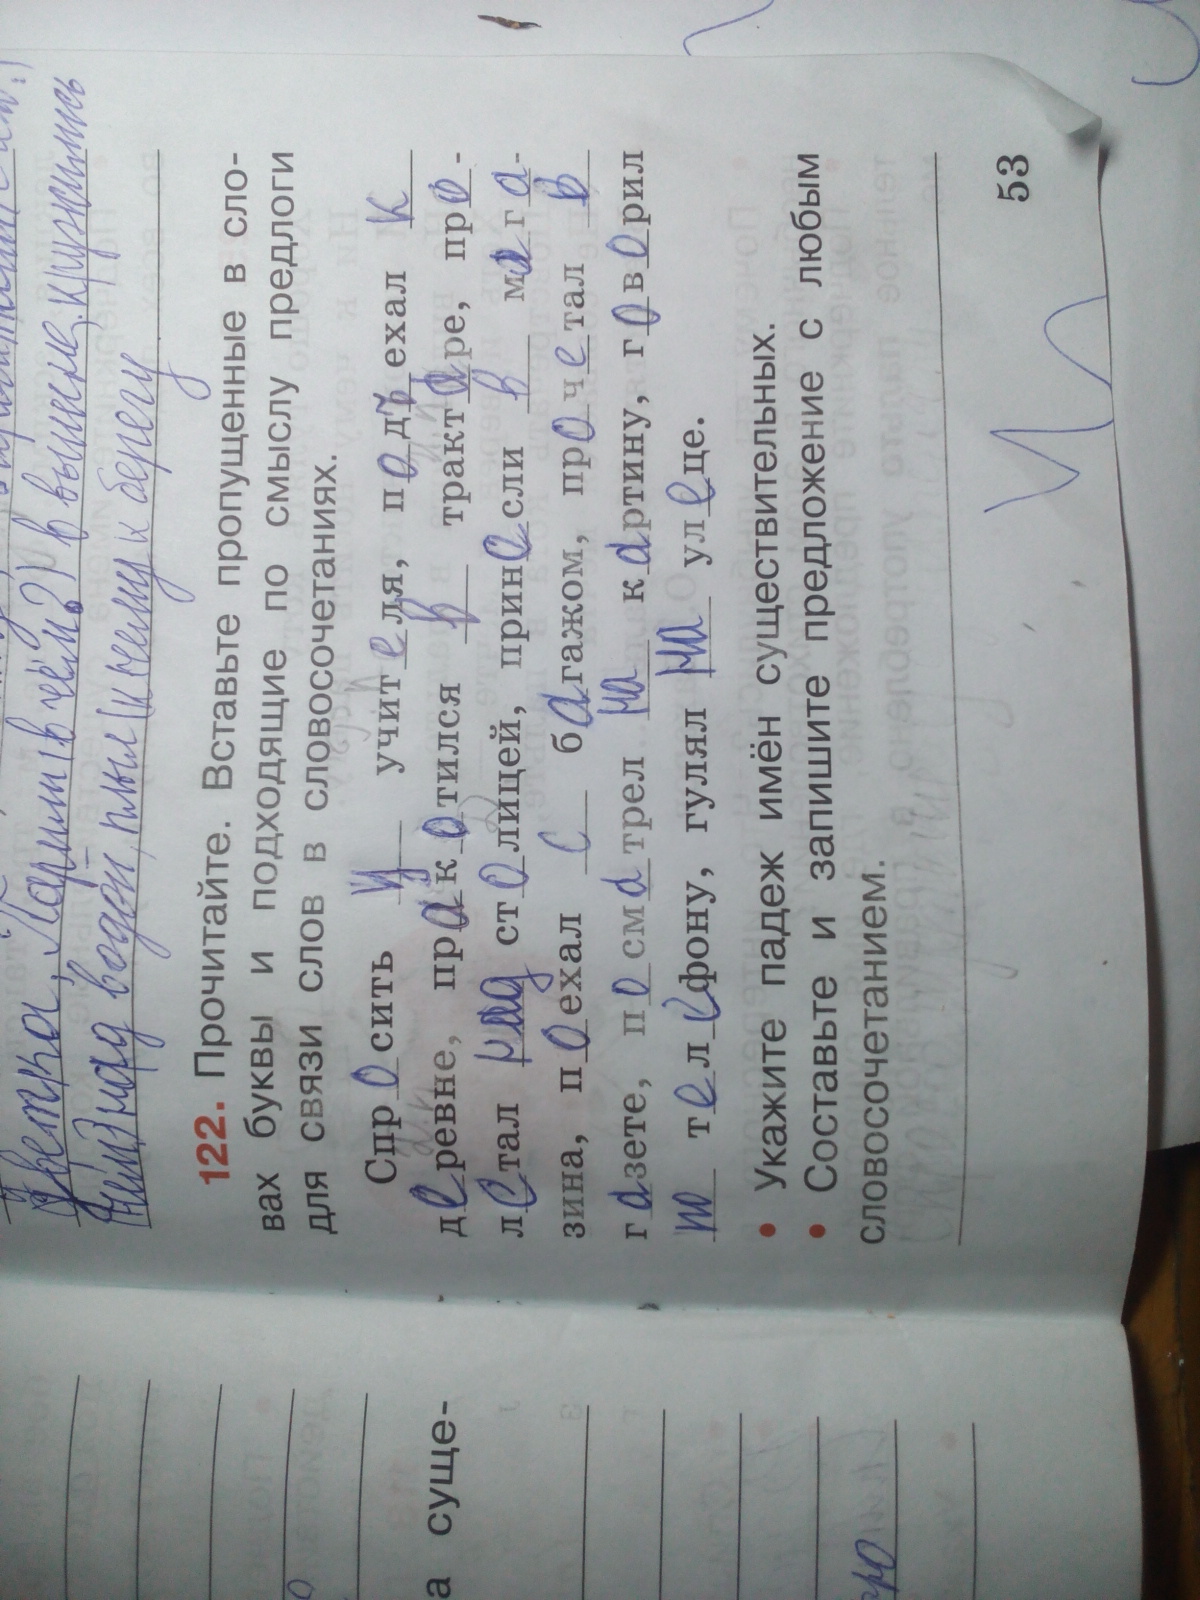 ветка, парил (в чём?) в вышине, кружились
(чем?) над водой, плыл (к чему) к берегу
122. Прочитайте. Вставьте пропущенные в сло-
вах буквы и подходящие по смыслу предлоги
для связи слов в словосочетаниях.
Спросить у учителя, подъехал к
деревне, прокотился в тракторе, про-
летал над столицей, принесли в мага-
зина, поехал с багажом, прочетал в
газете, посматрел на картину, говорил
по телефону, гулял на улеце.
• Укажите падеж имён существительных.
• Составьте и запишите предложение с любым
словосочетанием.
53
а суще-